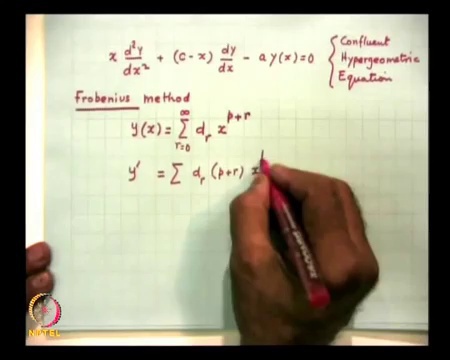 x d²y/dx² + (c-x) dy/dx - a y(x) = 0 { Confluent
Hypergeometric
Equation
Frobenius method
y(x) = ∑_{r=0}^{∞} d_r x^{p+r}
y' = ∑ d_r (p+r) x
NPTEL